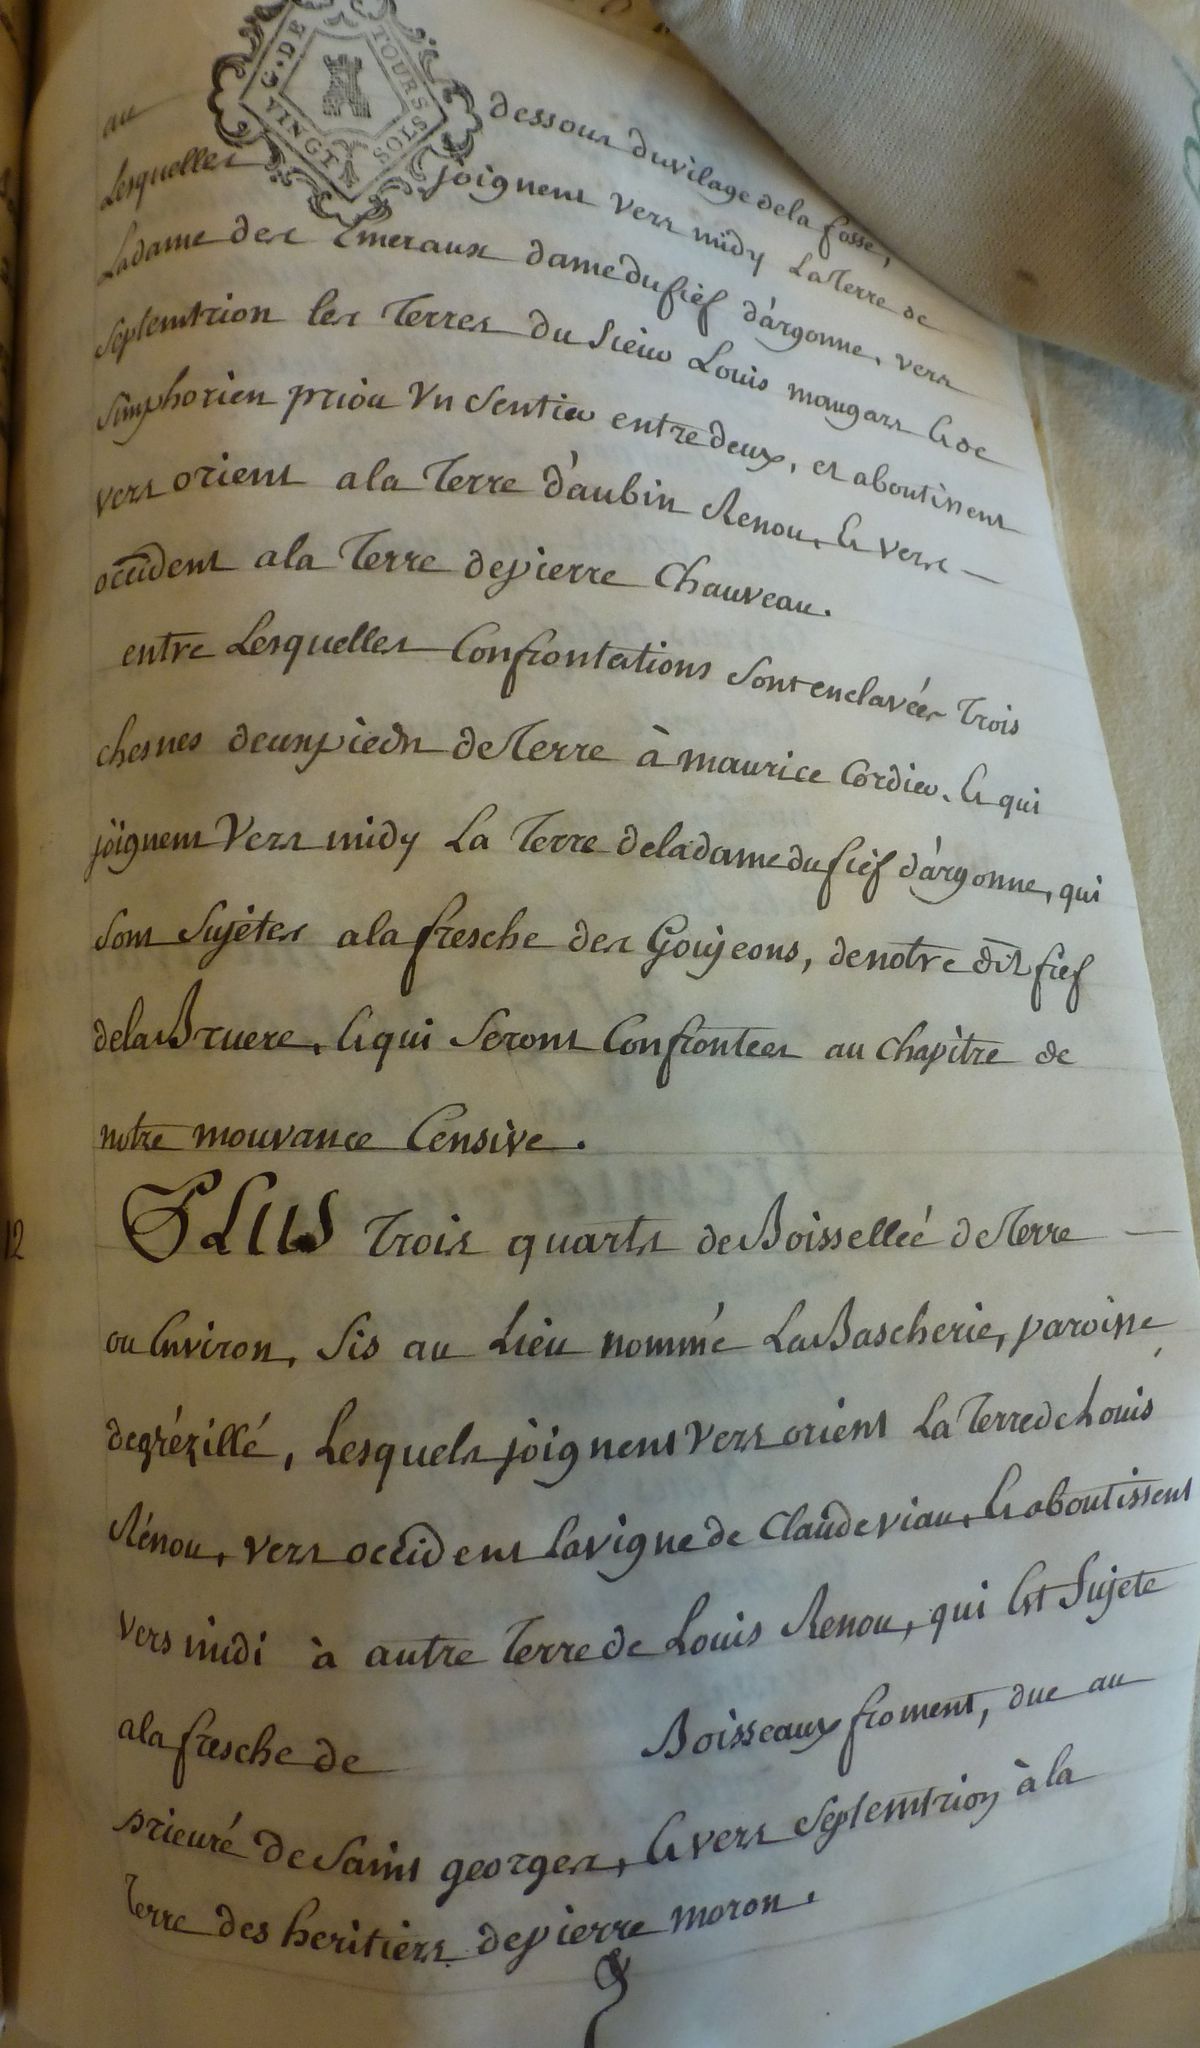 G. DE TOURS
VINGT SOLS
au dessous du vilage de la fosse,
Lesquelles joignent vers midy La Terre de
La dame des Emeraux dame du fief d'argonne, vers
Septemtrion les Terres du Sieur Louis maugars & de
Simphorien priou Vn Sentier entre deux, et aboutissent
vers orient a la Terre d'aubin Renou, & vers —
occident a la Terre de pierre Chauveau.
entre Lesquelles Confrontations sont enclavées Trois
chesnes deux pieds de Terre à maurice Cordier. & qui
joignent Vers midy La Terre de la dame du fief d'argonne, qui
sont Sujètes a la fresche des Goujeons, de notre dit fief
de la Bruere, & qui Seront Confrontees au chapitre de
notre mouvance Censive.
12
PLUS Trois quarts de Boisselleé de Terre —
ou Environ, Sis au Lieu nommé La Bascherie, paroisse
de grézillé, Lesquels joignent Vers orient La Terre de Louis
Rénou, vers occident La vigne de Claude viau, & aboutissent
vers midi à autre Terre de Louis Renou, qui Est Sujete
a la fresche de Boisseaux froment, due au
prieuré de Saint georges, & vers Septemtrion à la
Terre des heritiers de pierre moron.